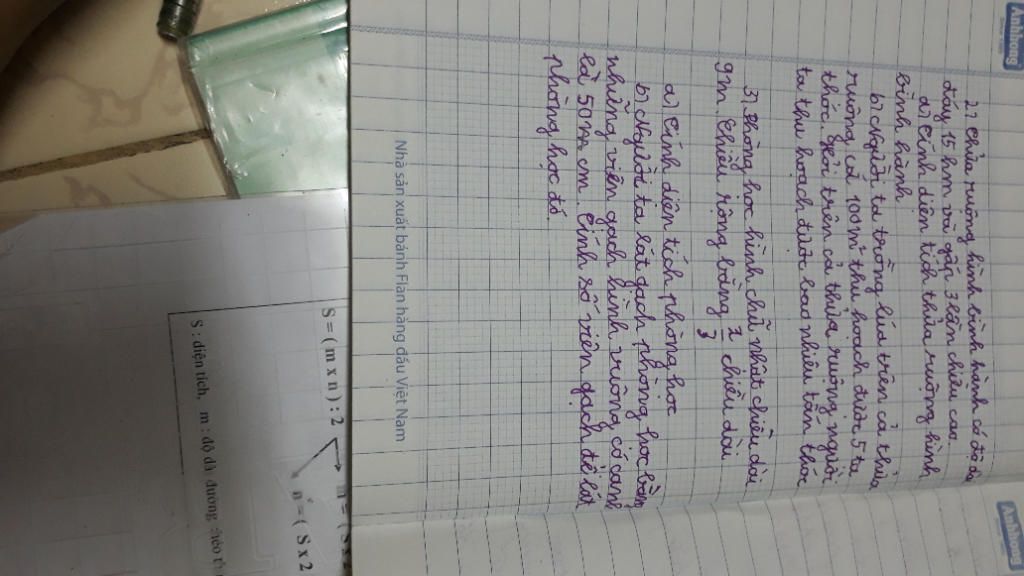 Ánh Dương
2.) Thửa ruộng hình bình hành có độ dài
đáy 15 hm và gấp 3 lần chiều cao
a) Tính diện tích thửa ruộng hình
bình hành
b) Người ta trồng lúa trên cả thửa
ruộng, cứ 100m² thu hoạch được 5 tạ
thóc. Hỏi trên cả thửa ruộng, người
ta thu hoạch được bao nhiêu tấn thóc
3) Phòng học hình chữ nhật chiều dài
9m. Chiều rộng bằng 2/3 chiều dài
a) Tính diện tích phòng học
b) Người ta lát gạch phòng học bằng
những viên gạch hình vuông có cạnh
là 50 cm. Tính số viên gạch để lát
phòng học đó.
Nhà sản xuất bánh Flan hàng đầu Việt Nam
S = ( m x n ) : 2
n = ( S x 2
S : diện tích, m : độ dài đường chéo